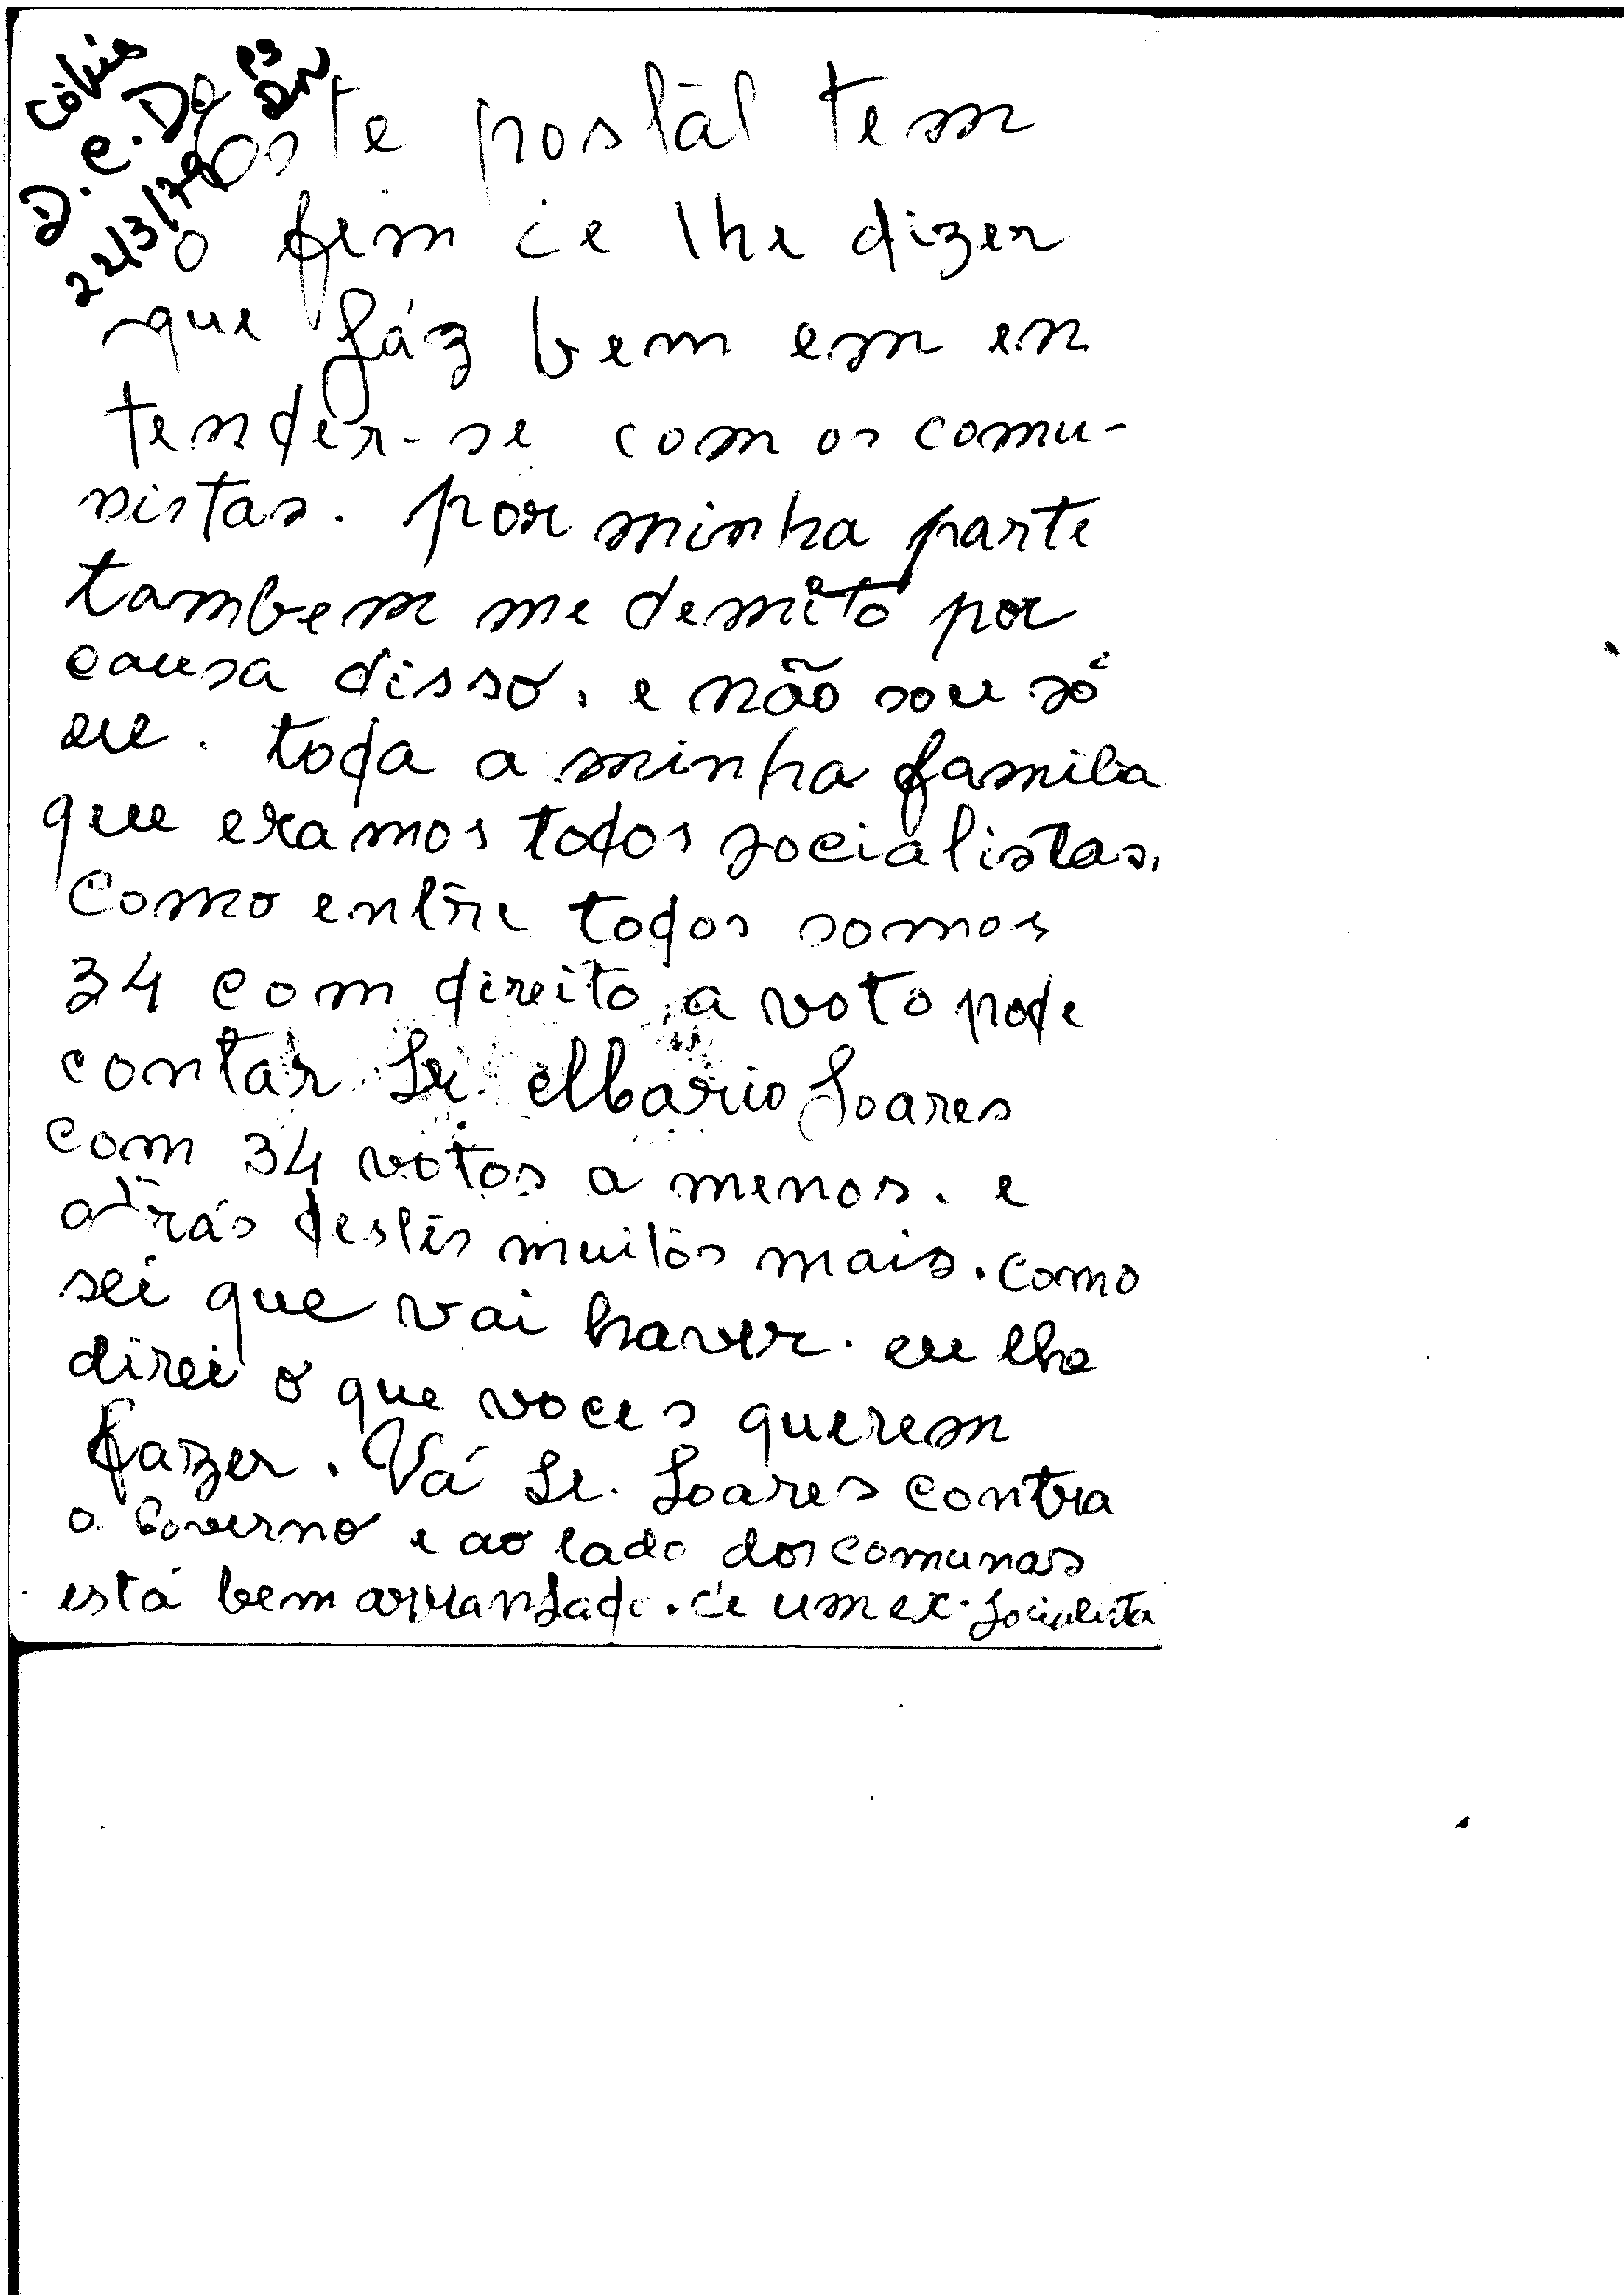 Cópia PS
D.C.D. DN
22/3/79
Este postál tem
o fim de lhe dizer
que fáz bem em en
tender-se com os comu-
nistas. por minha parte
tambem me demito por
causa disso. e não sou só
eu. toda a minha familia
que eramos todos socialistas.
Como entre todos somos
34 com direito a voto pode
contar Sr. Mario Soares
com 34 votos a menos. e
atrás destes muitos mais. como
sei que vai haver. eu lhe
direi o que voces querem
fazer. Vá Sr. Soares contra
o Governo e ao lado dos comunas
está bem arranjado. de um ex-socialista